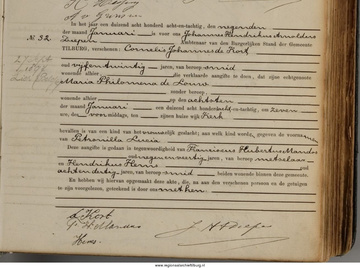 In het jaar een duizend acht honderd acht-en-tachtig, den negenden
der maand Januari is voor ons Johannes Henricus Arnoldus
Nº 32. Diepen Ambtenaar van den Burgerlijken Stand der Gemeente
TILBURG, verschenen: Cornelis Johannes de Kort
oud vijfentwintig jaren, van beroep smid
wonende alhier die verklaarde aangifte te doen, dat zijne echtgenoote
Maria Philomena de Louw
zonder beroep
wonende alhier op den achtsten
der maand Januari een duizend acht honderd acht-en-tachtig, om zeven
ure, des voormiddags, ten zijnen huize wijk Kerk
bevallen is van een kind van het vrouwelijk geslacht; aan welk kind werden, gegeven de voornamen
van Petronilla Lucia
Deze aangifte is gedaan in tegenwoordigheid van Franciscus Hubertus Mandos
oud negenenveertig jaren, van beroep metselaar
en Hendrikus Hems oud
achtendertig jaren, van beroep smid beiden wonende binnen deze gemeente.
En hebben wij hiervan opgemaakt deze akte, die, na aan den verschenen persoon en de getuigen
te zijn voorgelezen, geteekend is door ons met hen.
d Kort
Hems
www.regionaalarchieftilburg.nl